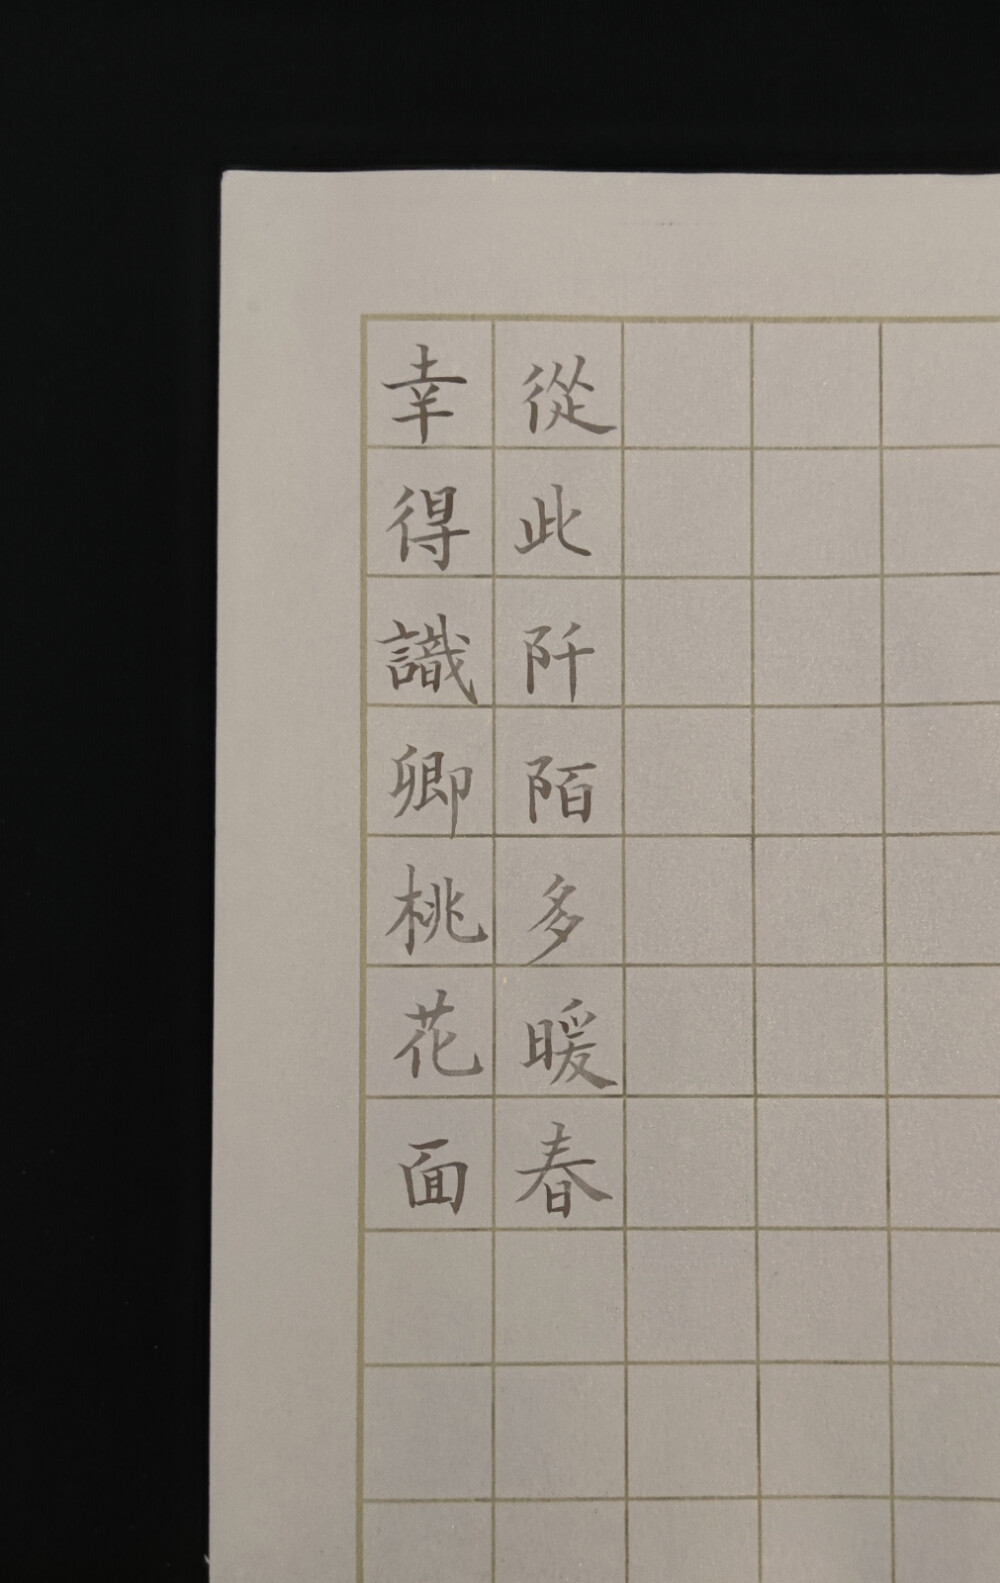 幸得識卿桃花面
從此阡陌多暖春